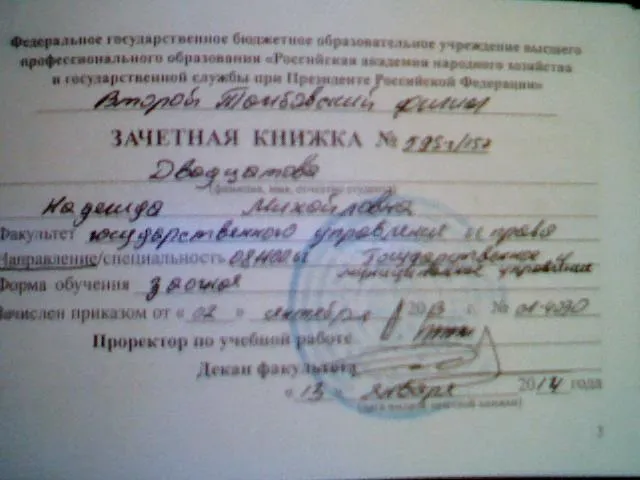 Федеральное государственное бюджетное образовательное учреждение высшего
профессионального образования «Российская академия народного хозяйства
и государственной службы при Президенте Российской Федерации»
Второй Тамбовский филиал
ЗАЧЕТНАЯ КНИЖКА №
Двадцатова
(фамилия, имя, отчество студента)
Надежда Михайловна
Факультет государственного управления и права
Направление/специальность Государственное и
муниципальное управление
Форма обучения заочная
Зачислен приказом от « 02 » сентября 2013 г. № 01-4090
Проректор по учебной работе
Декан факультета
« 13 » января 2014 года
(дата выдачи зачетной книжки)
3